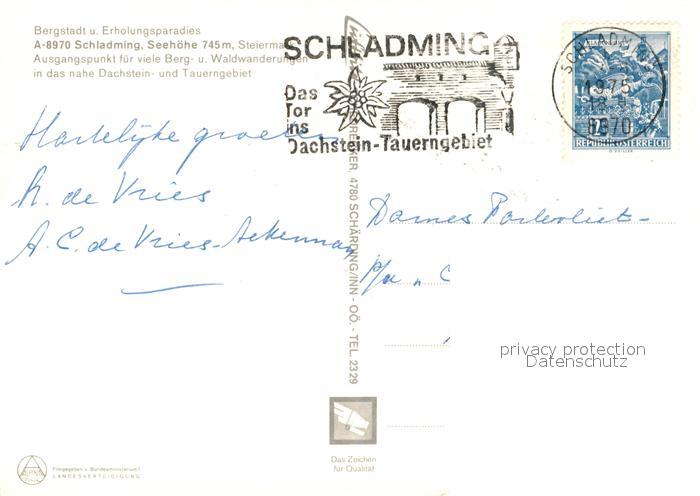 Bergstadt u. Erholungsparadies
A-8970 Schladming, Seehöhe 745 m, Steiermark
Ausgangspunkt für viele Berg- u. Waldwanderungen
in das nahe Dachstein- und Tauerngebiet
SCHLADMING
Das
Tor
ins
Dachstein-Tauerngebiet
SCHLADMING
1975
8970
REPUBLIK ÖSTERREICH
Hartelijke groeten
de Vries
A. C. de Vries-Ackerman
4780 SCHÄRDING/INN - OÖ. - TEL. 2329
Dames
P/a
privacy protection
Datenschutz
Das Zeichen
für Qualität
Freigegeben v. Bundesministerium f.
LANDESVERTEIDIGUNG